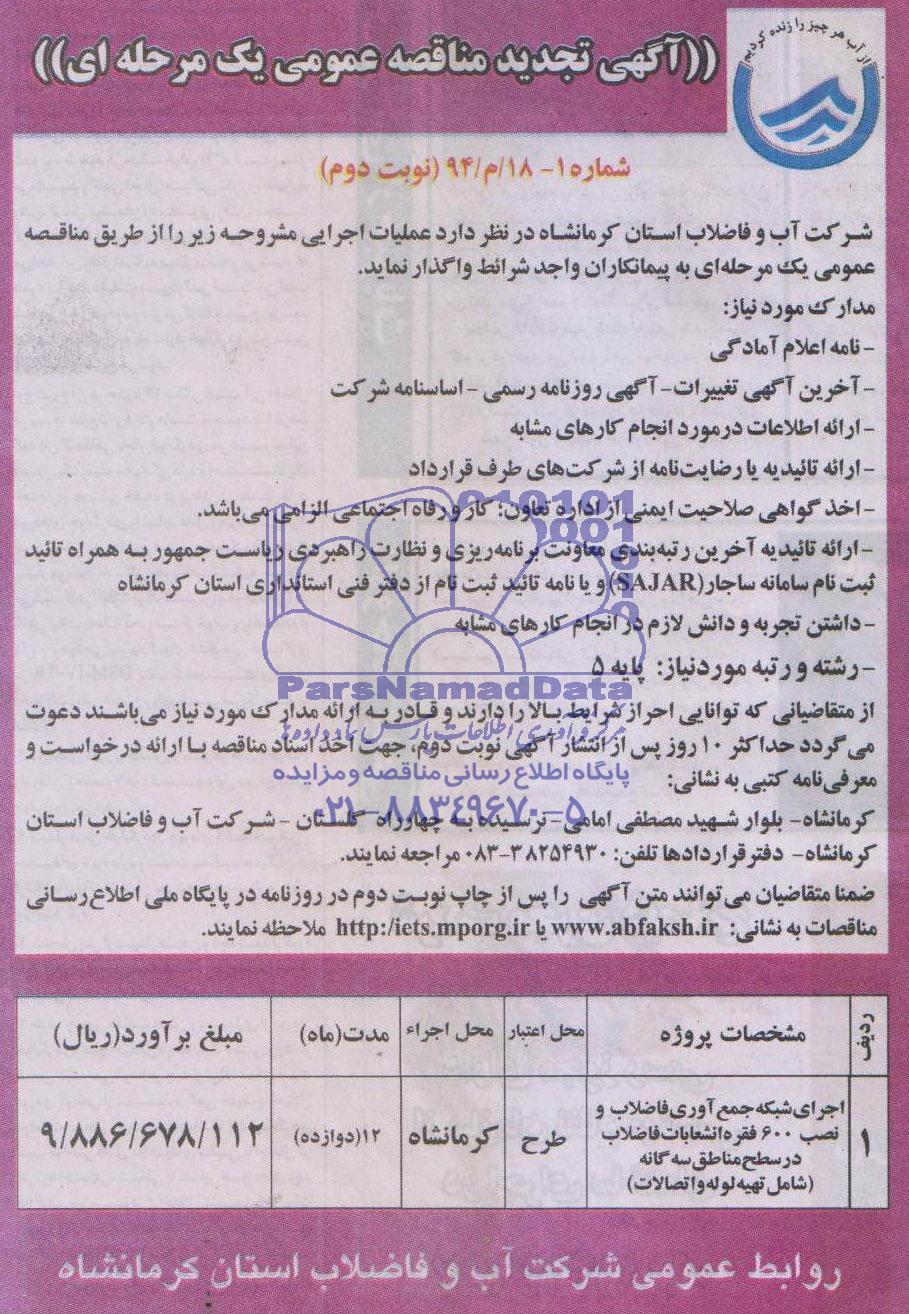 از آب هر چیز را زنده کردیم
((آگهی تجدید مناقصه عمومی یک مرحله ای))
شماره ۱- ۱۸/م/۹۴ (نوبت دوم)
شرکت آب و فاضلاب استان کرمانشاه در نظر دارد عملیات اجرایی مشروحه زیر را از طریق مناقصه
عمومی یک مرحله‌ای به پیمانکاران واجد شرائط واگذار نماید.
مدارک مورد نیاز:
- نامه اعلام آمادگی
- آخرین آگهی تغییرات- آگهی روزنامه رسمی - اساسنامه شرکت
- ارائه اطلاعات درمورد انجام کارهای مشابه
- ارائه تائیدیه یا رضایت‌نامه از شرکت‌های طرف قرارداد
- اخذ گواهی صلاحیت ایمنی از اداره تعاون؛ کار و رفاه اجتماعی الزامی می‌باشد.
- ارائه تائیدیه آخرین رتبه‌بندی معاونت برنامه‌ریزی و نظارت راهبردی ریاست جمهور به همراه تائید
ثبت نام سامانه ساجار(SAJAR) و یا نامه تائید ثبت نام از دفتر فنی استانداری استان کرمانشاه
- داشتن تجربه و دانش لازم در انجام کارهای مشابه
- رشته و رتبه موردنیاز: پایه ۵
ParsNamadData
از متقاضیانی که توانایی احراز شرایط بالا را دارند و قادر به ارائه مدارک مورد نیاز می‌باشند دعوت
می‌گردد حداکثر ۱۰ روز پس از انتشار آگهی نوبت دوم، جهت اخذ اسناد مناقصه با ارائه درخواست و
معرفی‌نامه کتبی به نشانی:
پایگاه اطلاع رسانی مناقصه و مزایده
۰۲۱-۸۸۳۴۹۶۷۰-۵
کرمانشاه- بلوار شهید مصطفی امامی- نرسیده به چهارراه گلستان - شرکت آب و فاضلاب استان
کرمانشاه- دفتر قراردادها تلفن: ۳۸۲۵۴۹۳۰-۰۸۳ مراجعه نمایند.
ضمنا متقاضیان می‌توانند متن آگهی را پس از چاپ نوبت دوم در روزنامه در پایگاه ملی اطلاع رسانی
مناقصات به نشانی: www.abfaksh.ir یا http:/iets.mporg.ir ملاحظه نمایند.
ردیف مشخصات پروژه محل اعتبار محل اجراء مدت(ماه) مبلغ برآورد(ریال)
۱ اجرای شبکه جمع آوری فاضلاب و
نصب ۶۰۰ فقره انشعابات فاضلاب
در سطح مناطق سه گانه
(شامل تهیه لوله و اتصالات)
طرح کرمانشاه ۱۲(دوازده) ۹/۸۸۶/۶۷۸/۱۱۲
روابط عمومی شرکت آب و فاضلاب استان کرمانشاه